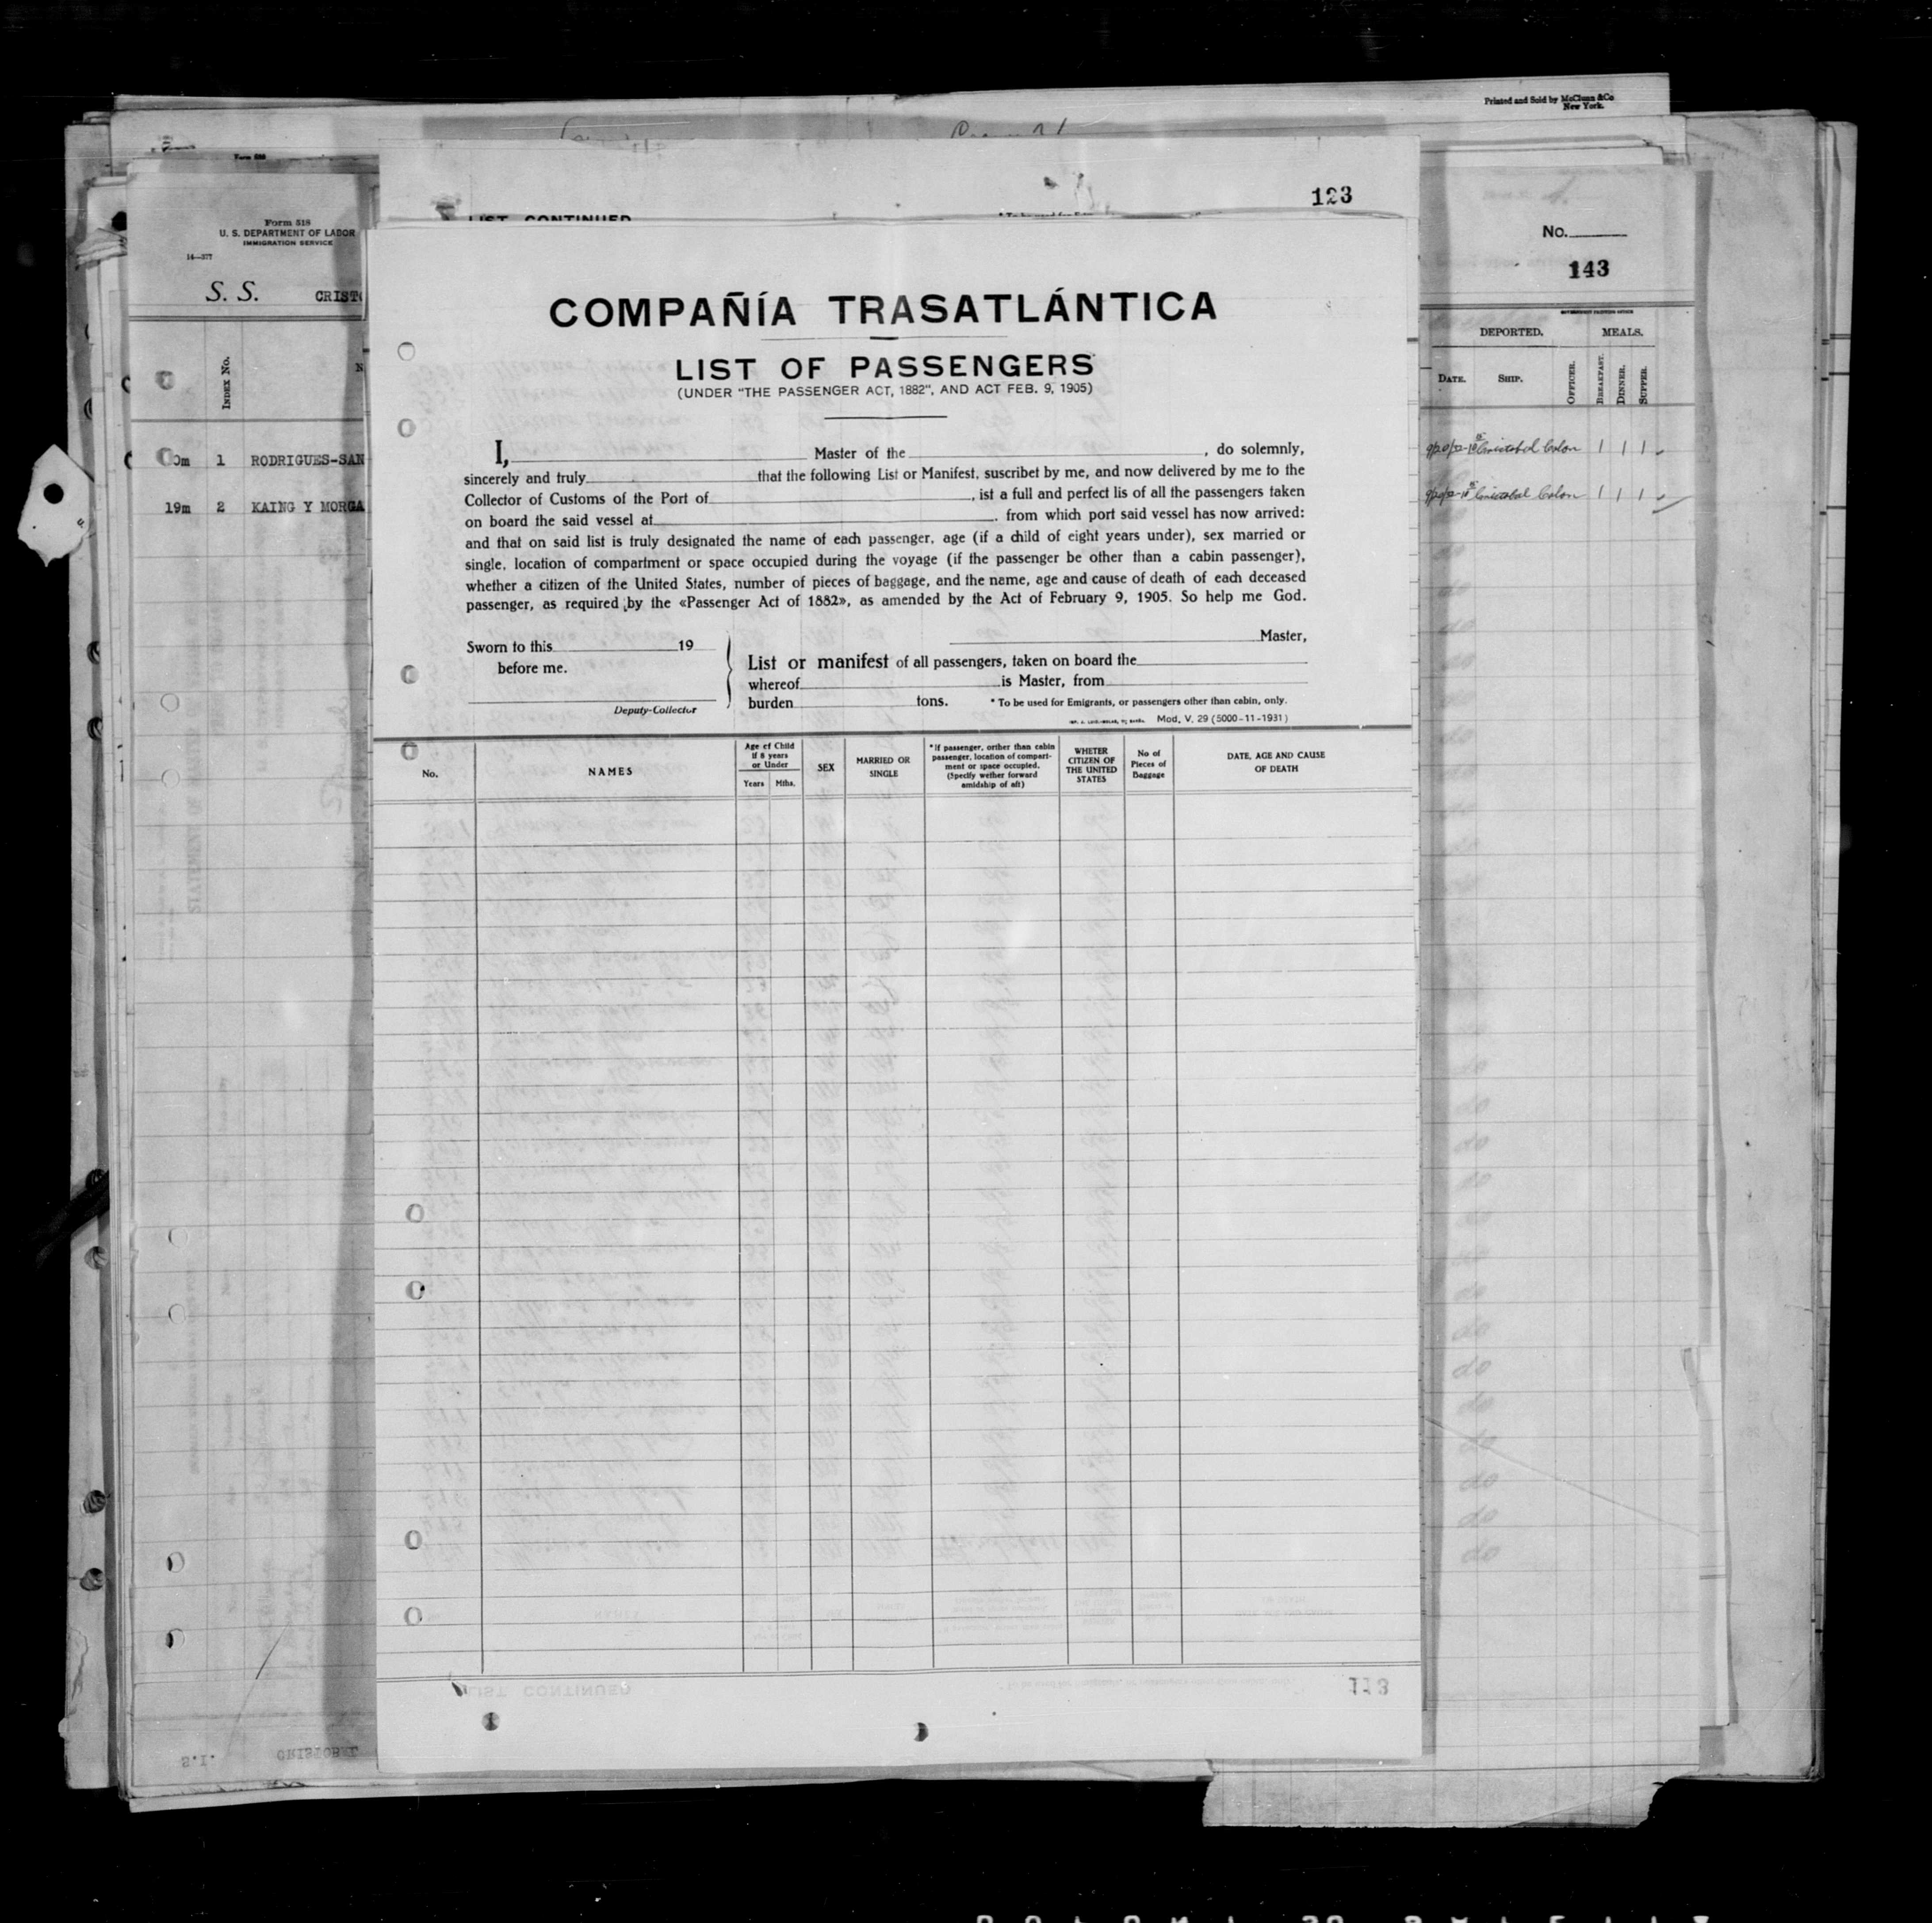 Printed and Sold by McClunn & Co
New York.
Form 518
U. S. DEPARTMENT OF LABOR
IMMIGRATION SERVICE
14—377
S. S. CRISTO
Index No.
1 RODRIGUES-SAN
19m 2 KAING Y MORGA
123
LIST CONTINUED
COMPAÑÍA TRASATLÁNTICA
LIST OF PASSENGERS
(UNDER "THE PASSENGER ACT, 1882", AND ACT FEB. 9, 1905)
I, Master of the , do solemnly,
sincerely and truly that the following List or Manifest, suscribet by me, and now delivered by me to the
Collector of Customs of the Port of , ist a full and perfect lis of all the passengers taken
on board the said vessel at , from which port said vessel has now arrived:
and that on said list is truly designated the name of each passenger, age (if a child of eight years under), sex married or
single, location of compartment or space occupied during the voyage (if the passenger be other than a cabin passenger),
whether a citizen of the United States, number of pieces of baggage, and the name, age and cause of death of each deceased
passenger, as required by the «Passenger Act of 1882», as amended by the Act of February 9, 1905. So help me God.
Sworn to this 19
before me.
Deputy-Collector
Master,
List or manifest of all passengers, taken on board the
whereof is Master, from
burden tons. * To be used for Emigrants, or passengers other than cabin, only.
Mod. V. 29 (5000-11-1931)
No.
NAMES
Age of Child
if 8 years
or Under
Years Mths.
SEX
MARRIED OR
SINGLE
* If passenger, orther than cabin
passenger, location of compart-
ment or space occupied.
(Specify wether forward
amidship of aft)
WHETER
CITIZEN OF
THE UNITED
STATES
No of
Pieces of
Baggage
DATE, AGE AND CAUSE
OF DEATH
No.
143
DEPORTED. MEALS.
Date. Ship. Officer. Breakfast. Dinner. Supper.
Cristobal Colon 1 1 1
Cristobal Colon 1 1 1
LIST CONTINUED
113
S.I. CRISTOBAL